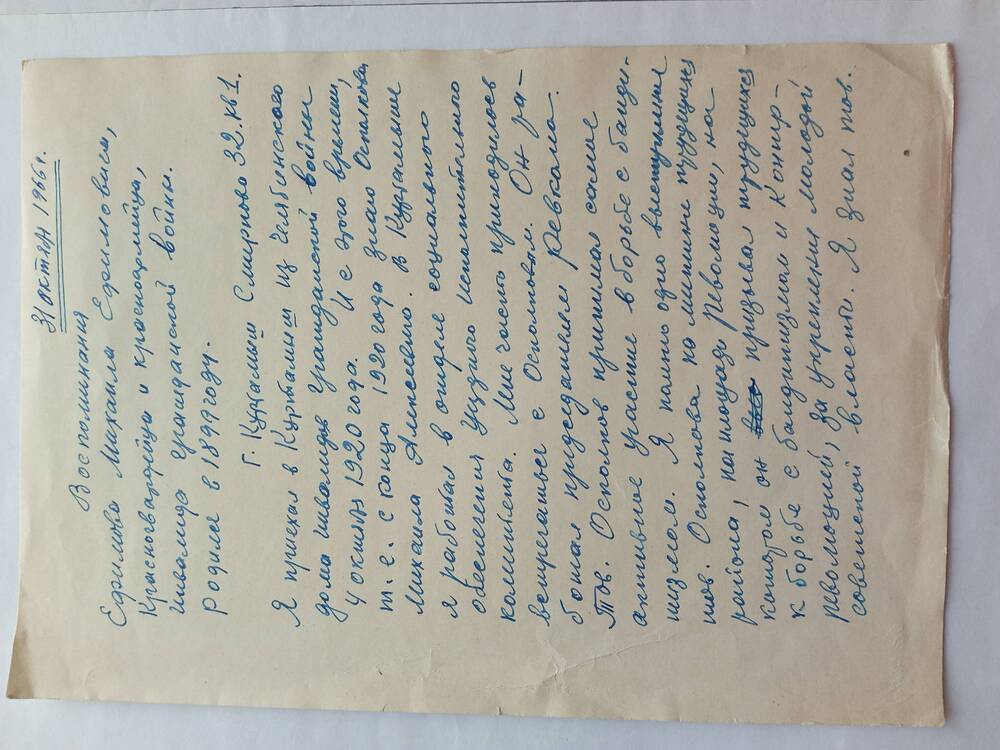 31 октяб 1966 г.
Воспоминания
Ефимова Михаила Ефимовича,
Красногвардейца и красноармейца,
инвалида гражданской войны.
Родился в 1899 году.
г. Куртамыш Смирнова 32. кв 1.
Я приехал в Куртамыш из Челябинского
дома инвалидов гражданской войны
4 октяб 1920 года. И с этого времени,
т.е. с конца 1920 года знаю Осипова
Михаила Алексеевича. В Куртамыше
я работал в отделе социального
обеспечения уездного исполнительного
комитета. Мне часто приходилось
встречаться с Осиповым. Он ра-
ботал председателем Ревкома.
Тов. Осипов принимал самое
активное участие в борьбе с банди-
тизмом. Я помню одно выступление
тов. Осипова на митинге трудящихся
района на площади Революции, на
котором он призывал трудящихся
к борьбе с бандитизмом и контр-
революцией, за укрепление молодой
советской власти. Я знал тов.